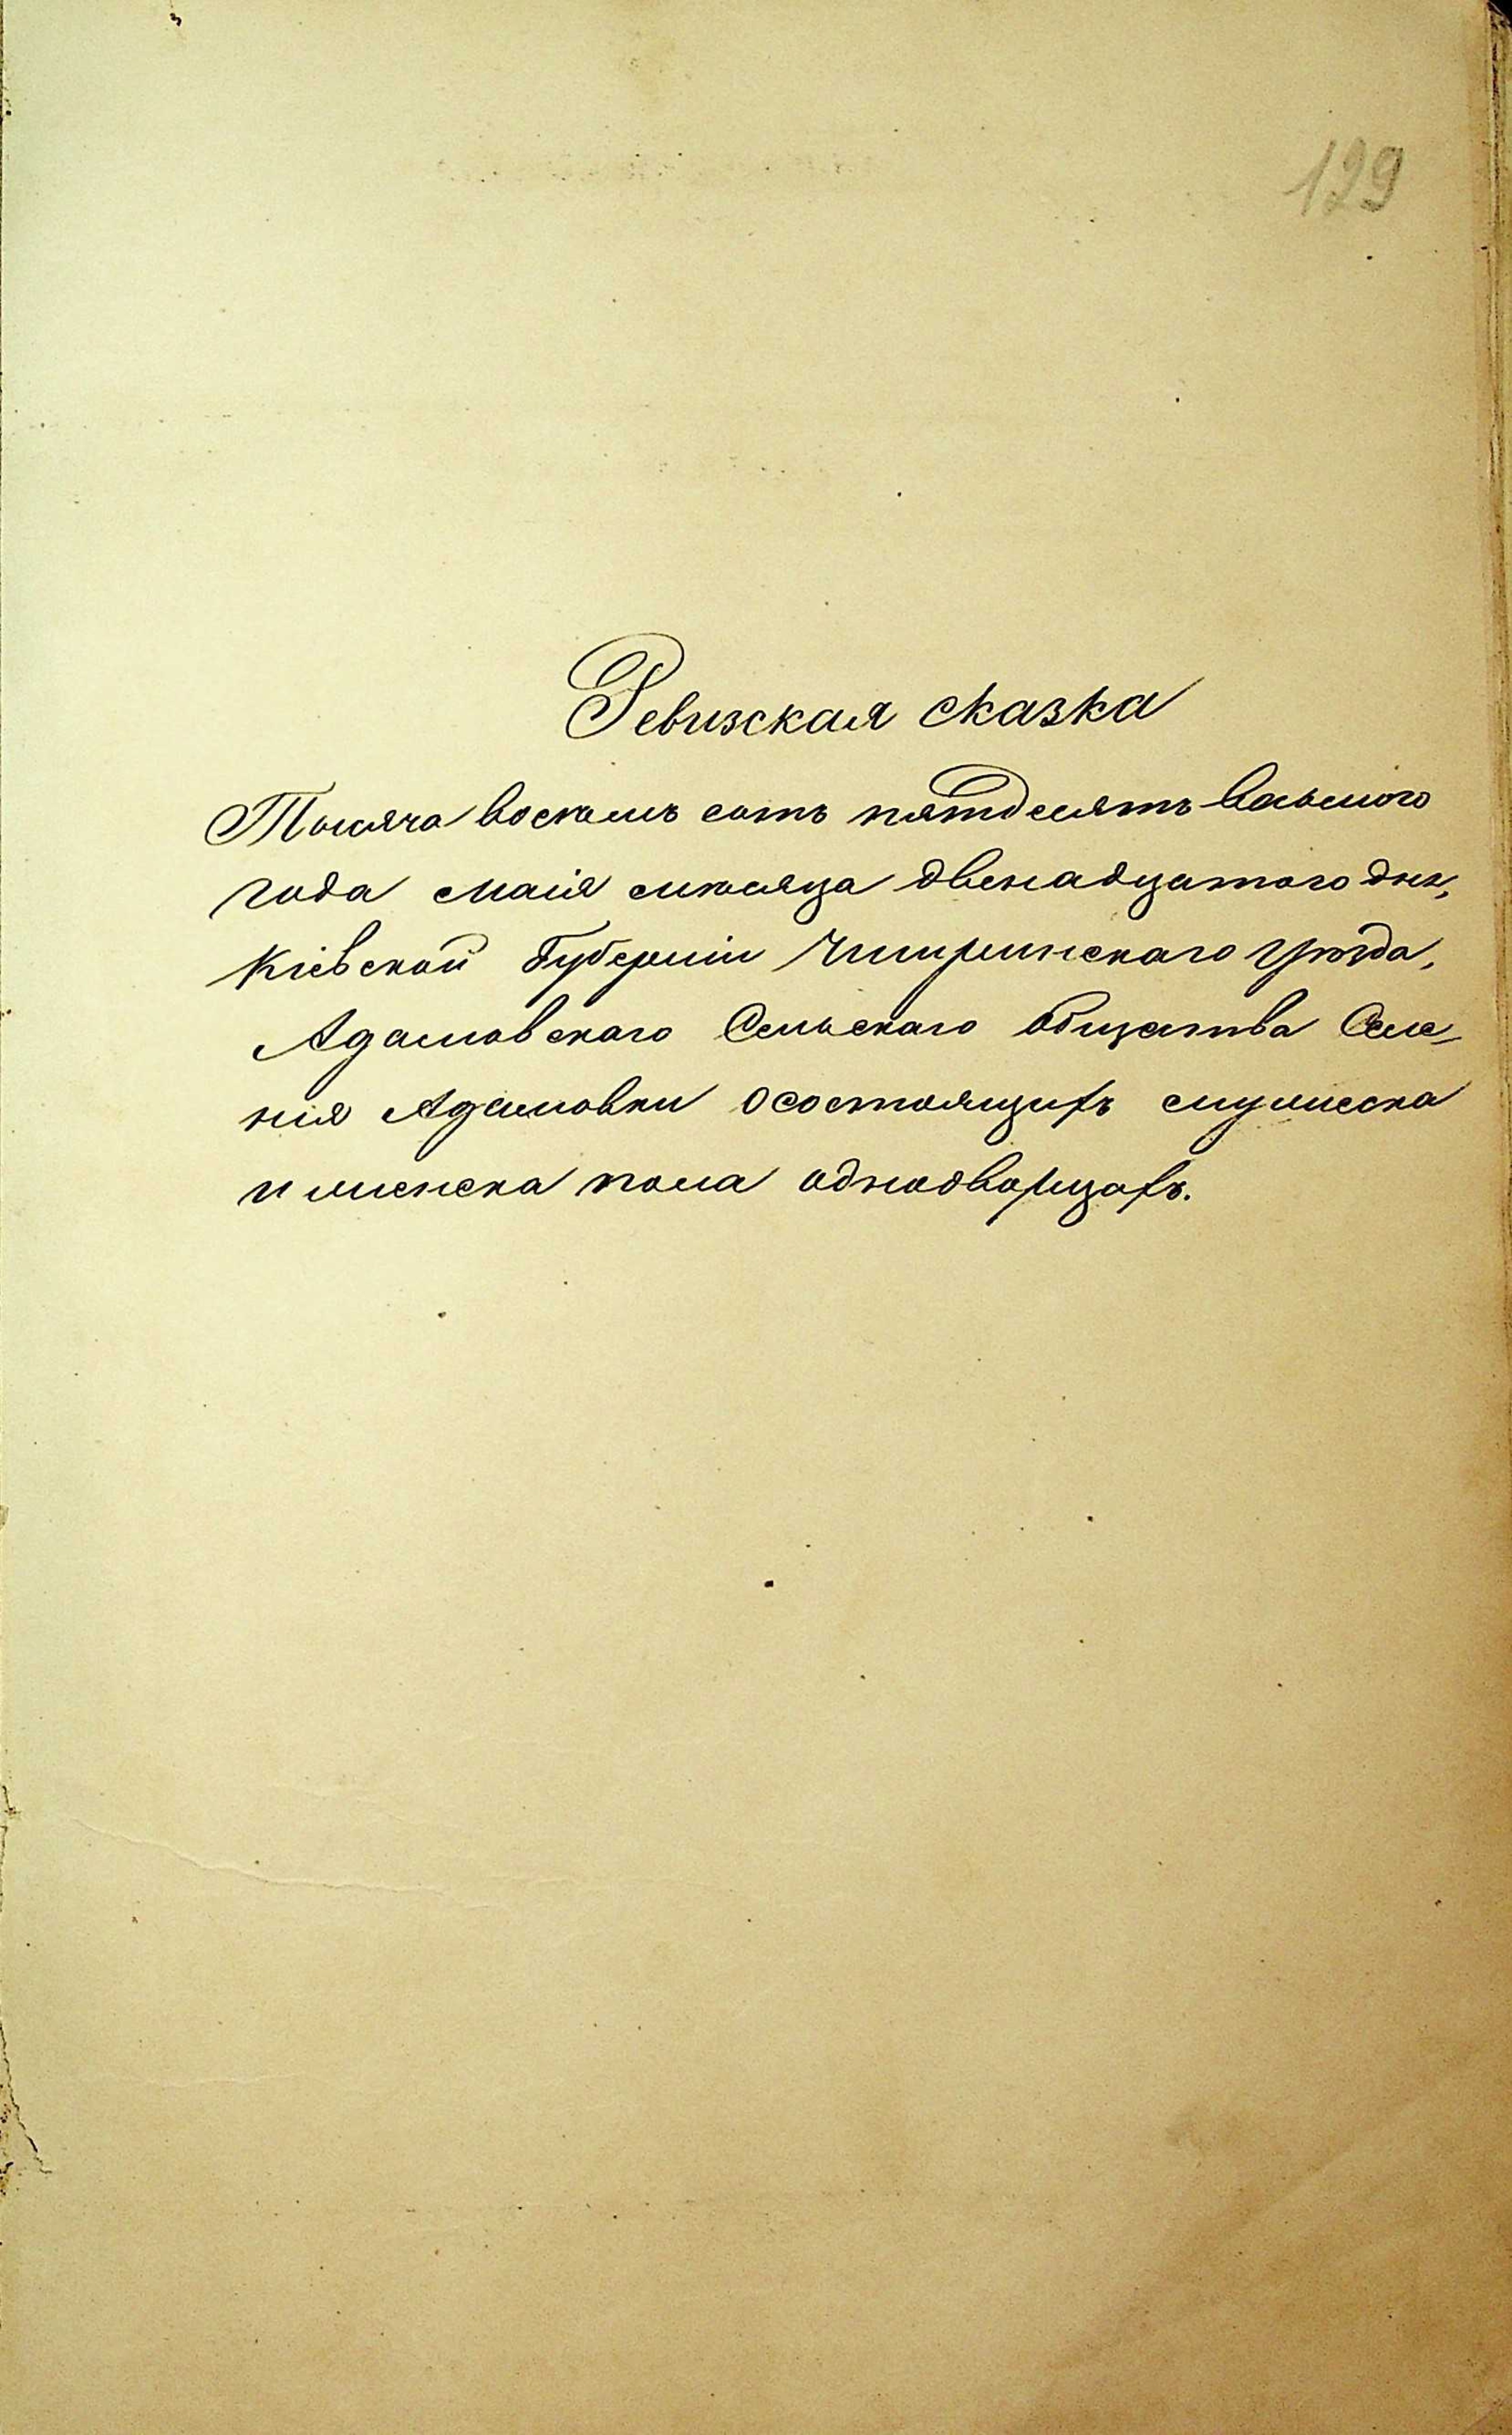 129
Ревизская сказка
Тысяча восемь сотъ пятдесятъ восьмого
года маія мѣсяца двенадцатого дня,
Кіевской Губерніи Чигиринскаго Уѣзда,
Адамовскаго Сельскаго общества Селе-
нія Адамовки осостоящихъ мужеска
и женска пола однодворцахъ.